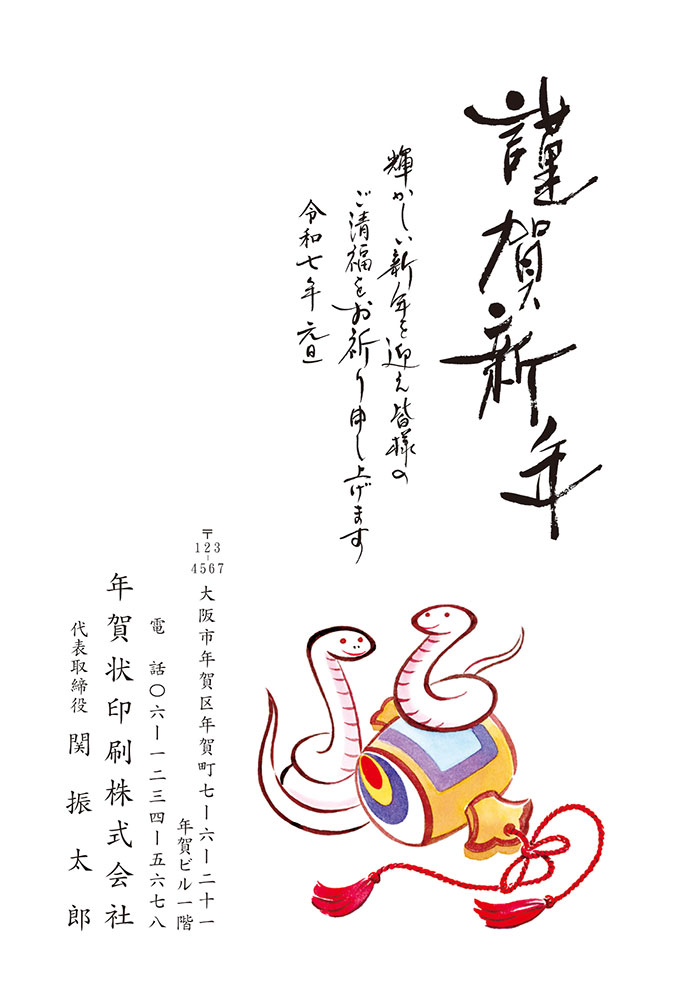 謹賀新年
輝かしい新年を迎え皆様の
ご清福をお祈り申し上げます
令和七年 元旦
〒123-4567
大阪市年賀区年賀町七ー六ー二十一
年賀ビル一階
電話〇六ー一二三四ー五六七八
年賀状印刷株式会社
代表取締役 関振太郎